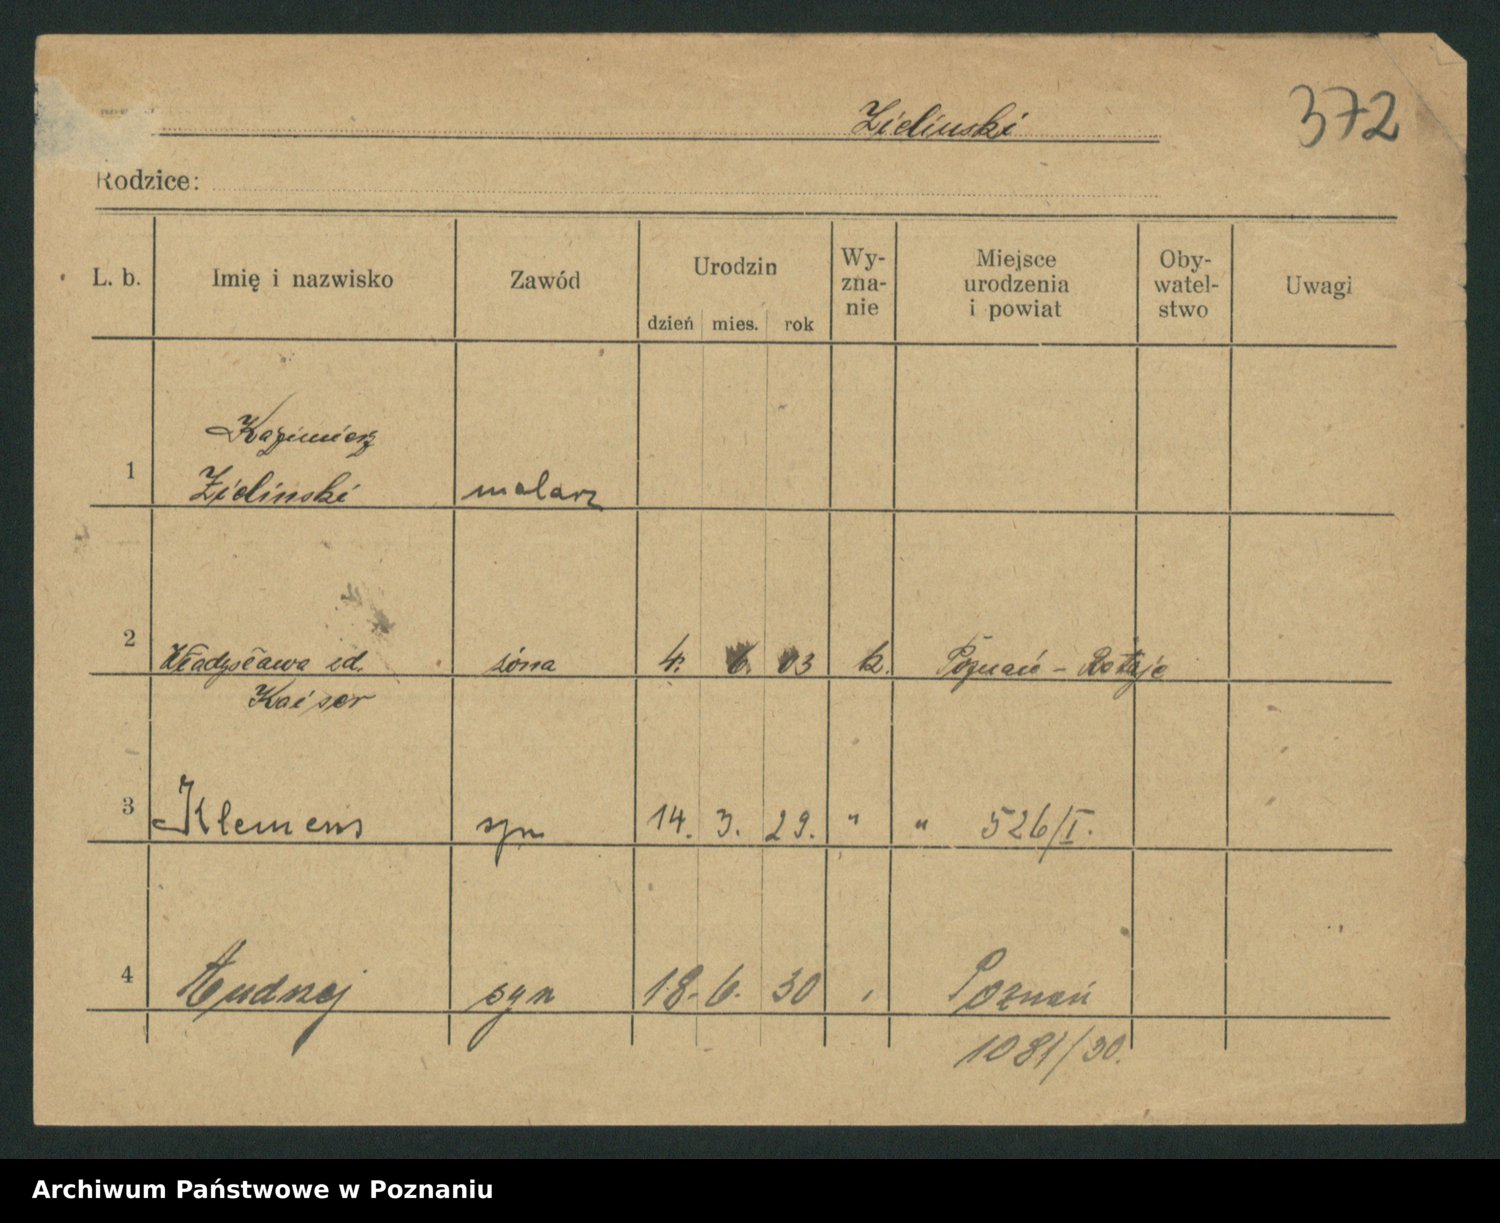 372
Zielinski
Rodzice:
L. b. Imię i nazwisko Zawód Urodzin dzień mies. rok Wy-zna-nie Miejsce urodzenia i powiat Oby-watel-stwo Uwagi
Kazimierz
1 Zielinski malarz
2 Władysława zd. żona 4. 6. 03 k. Poznań - Rataje
Kaiser
3 Klemens syn 14. 3. 29. " " 526/I.
4 Andrzej syn 18. 6. 30 , Poznań
1081/30.
Archiwum Państwowe w Poznaniu